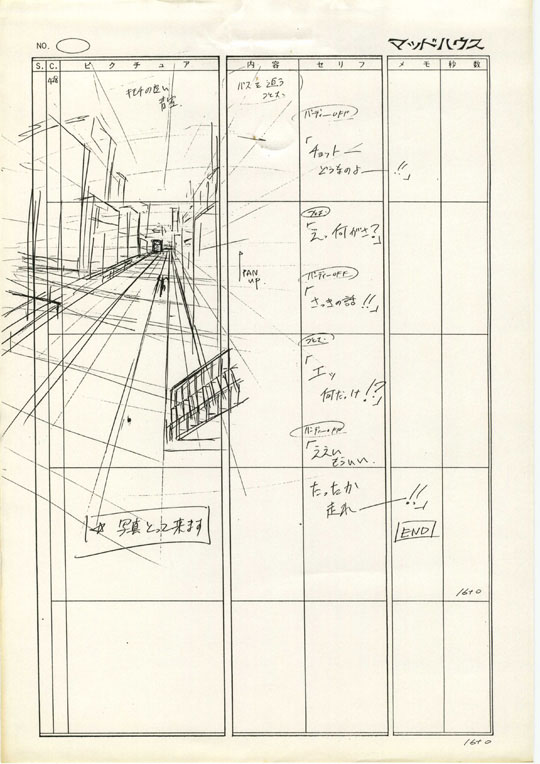 NO.
マッドハウス
S. C. ピクチュア 内容 セリフ メモ 秒数
バスを追う
青空
バーディーOFF
「チョット
どうなのよ
!!」
「え。何がさ?」
PAN
up.
バーディーOFF
「さっきの話!!」
「エッ
何だっけ!?」
バーディーOFF
「ええい
もういい.
たったか
走れ
!!」
END
写真とって来ます
16+0
16+0